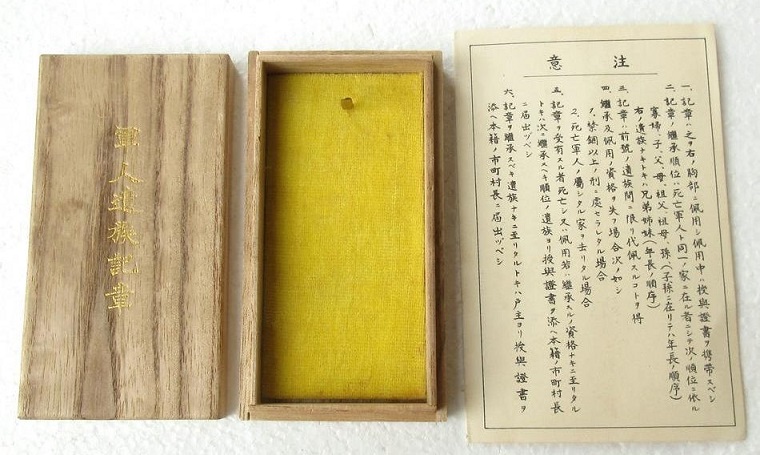 軍人遺族記章
注意
一、記章ハ之ヲ右ノ胸部ニ佩用シ佩用中ハ授與證書ヲ携帶スベシ
二、記章ノ繼承順位ハ死亡軍人ト同一ノ家ニ在ル者ニシテ次ノ順位ニ依ル
寡婦、子、父、母、祖父、祖母、孫、(子孫ニ在リテハ年長ノ順序)
右ノ遺族ナキトキハ兄弟姉妹(年長ノ順序)
三、記章ハ前號ノ遺族間ニ限リ代佩スルコトヲ得
四、繼承及佩用ノ資格ヲ失フ場合次ノ如シ
1、禁錮以上ノ刑ニ處セラレタル場合
2、死亡軍人ノ屬シタル家ヲ去リタル場合
五、記章ヲ受有スル者死亡シ又ハ佩用若ハ繼承スルノ資格ナキニ至リタル
トキハ次ニ繼承スベキ順位ノ遺族ヨリ授與證書ヲ添ヘ本籍ノ市町村長
ニ届出ヅベシ
六、記章ヲ繼承スベキ遺族ナキニ至リタルトキハ戸主ヨリ授與證書ヲ
添ヘ本籍ノ市町村長ニ届出ヅベシ